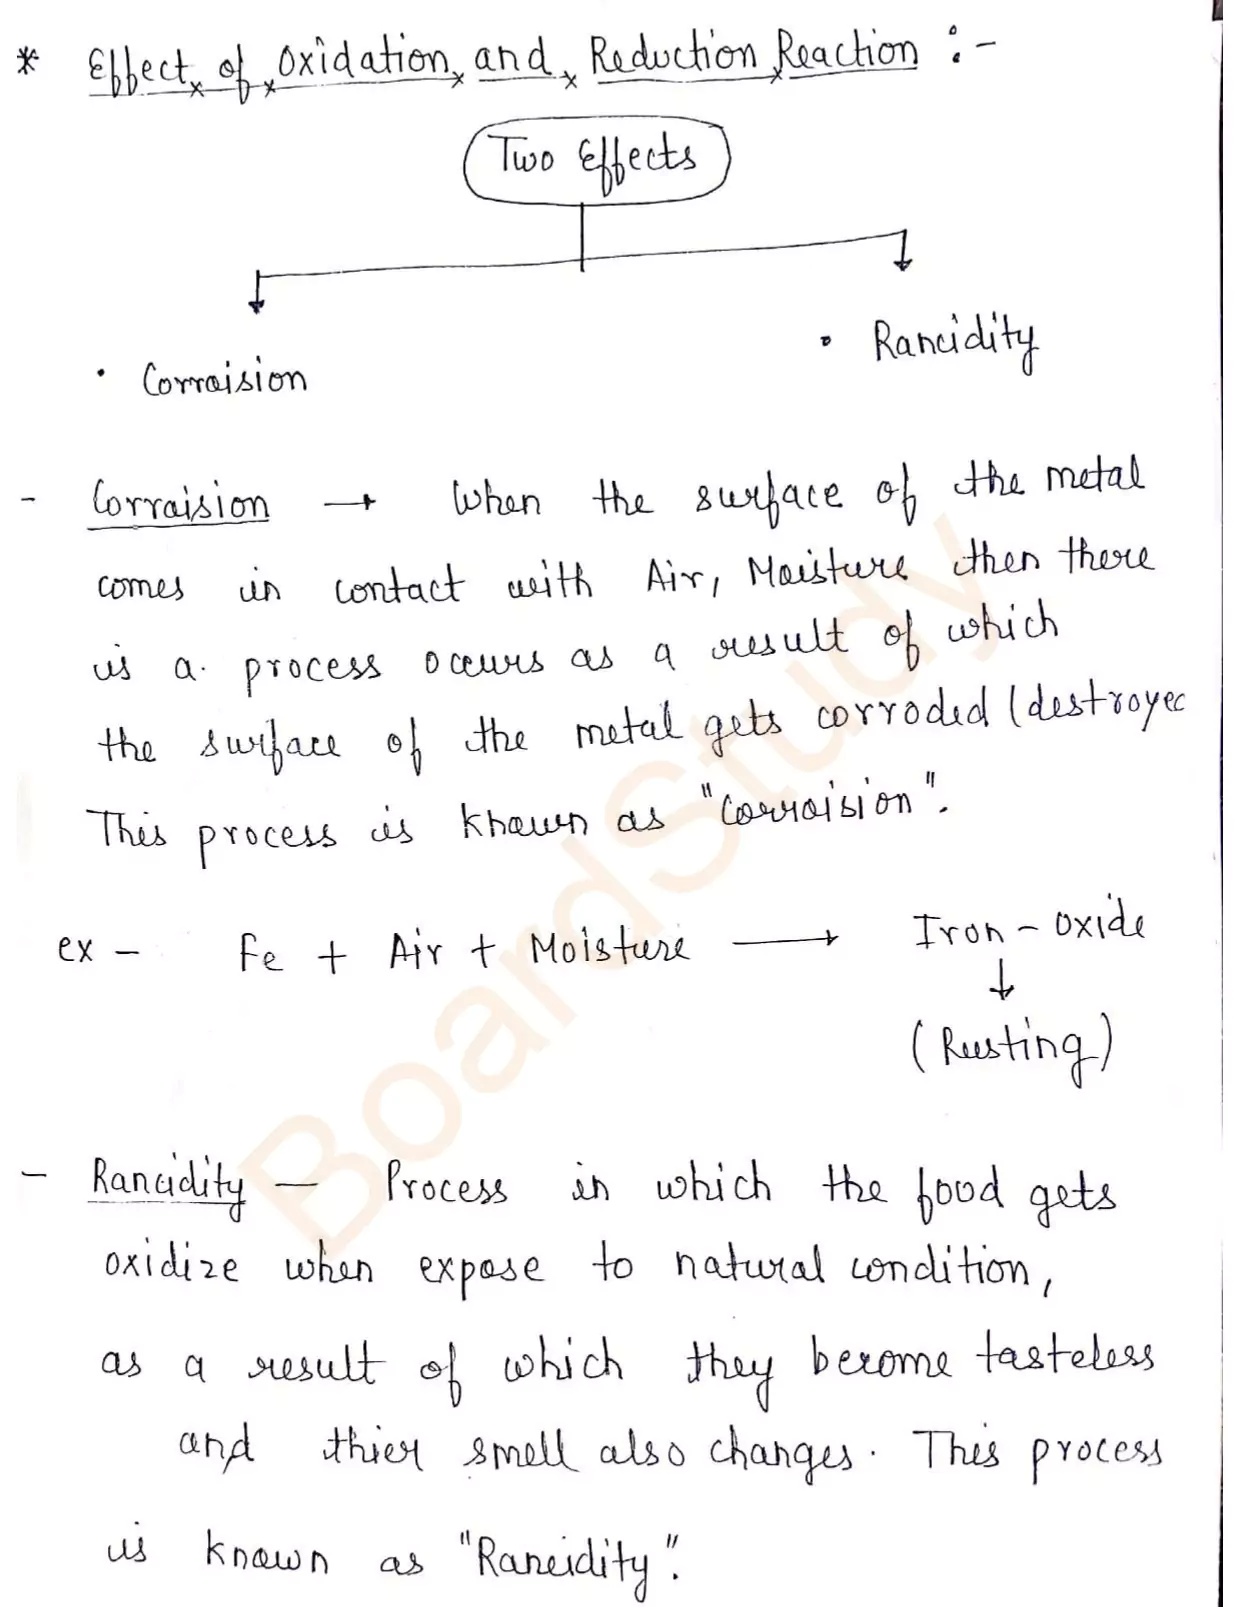 * Effect of Oxidation and Reduction Reaction :-
Two Effects
• Corraision
• Rancidity
- Corraision → When the surface of the metal
comes in contact with Air, Moisture then there
is a process occurs as a result of which
the surface of the metal gets corroded (destroyed
This process is known as "Corraision".
ex - Fe + Air + Moisture ⟶ Iron-oxide
↓
(Rusting)
- Rancidity — Process in which the food gets
oxidize when expose to natural condition,
as a result of which they become tasteless
and thier smell also changes. This process
is known as "Rancidity".
BoardStudy